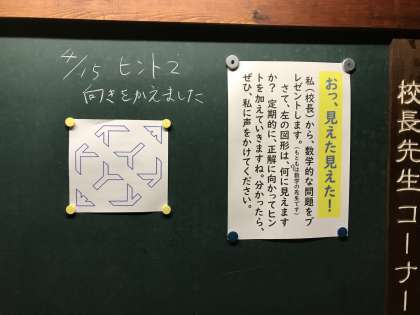 4/15 ヒント2
向きをかえました
おっ、見えた見えた！
私（校長）から、数学的な問題をプ
レゼントします。（もともは数学の先生です）
さて、左の図形は、何に見えます
か？　定期的に、正解に向かってヒン
トを加えていきますね。分かったら、
ぜひ、私に声をかけてください。
校長先生コーナー